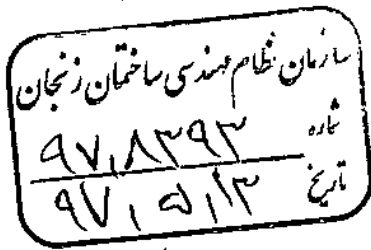 سازمان نظام مهندسی ساختمان زنجان
شماره ۹۷,۸۳۹۳
تاریخ ۹۷,۵,۱۳